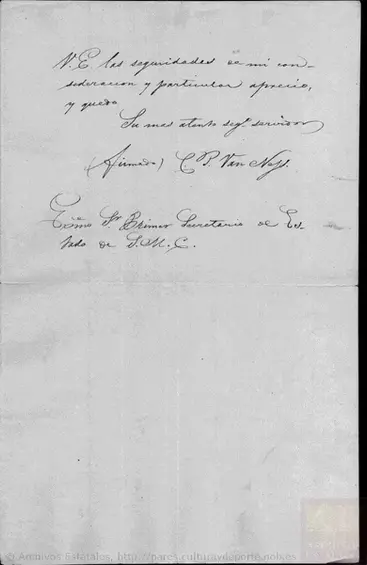 V. E. las seguridades de mi con-
sideracion y particular aprecio,
y quedo
Su mas atento segº. servidor
(firmado) C. P. Van Ness.
Exmo Sr. Primer Secretario de Es-
tado de S. M. C.
© Archivos Estatales, http://pares.culturaydeporte.gob.es